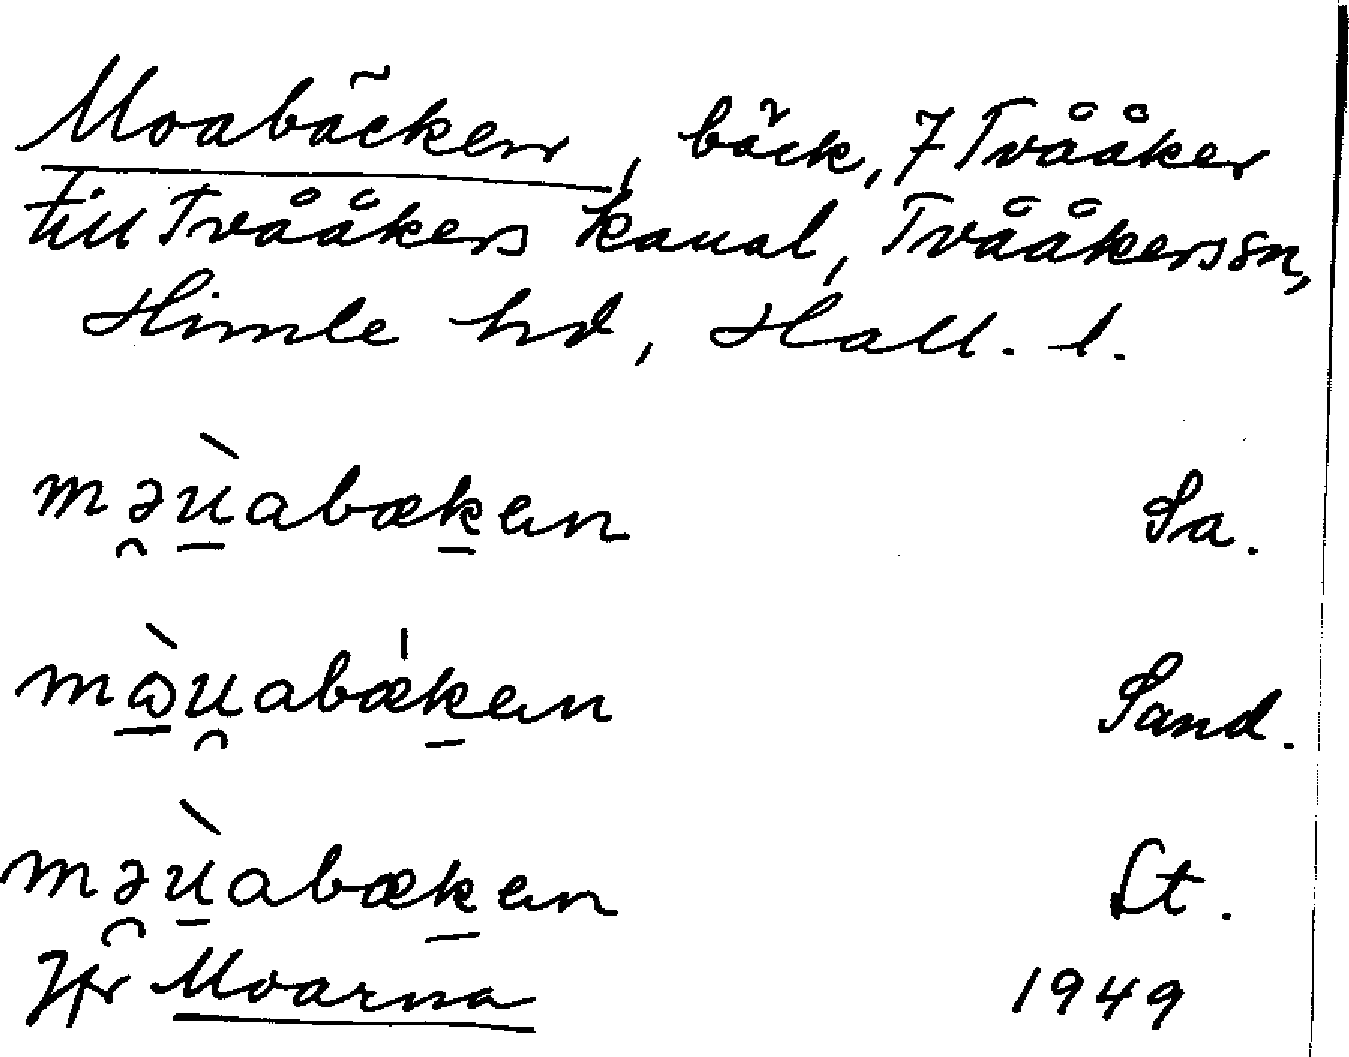 Moabäcken, bäck, 7 Tvååker
till Tvååkers kanal, Tvååkers sn,
Himle hd, Hall. l.
mə̯ù̱abæḵen Sa.
mɷ̱̀u̯abæ̍ḵen Sand.
mə̯ù̱abæḵen St.
Jfr Moarna 1949